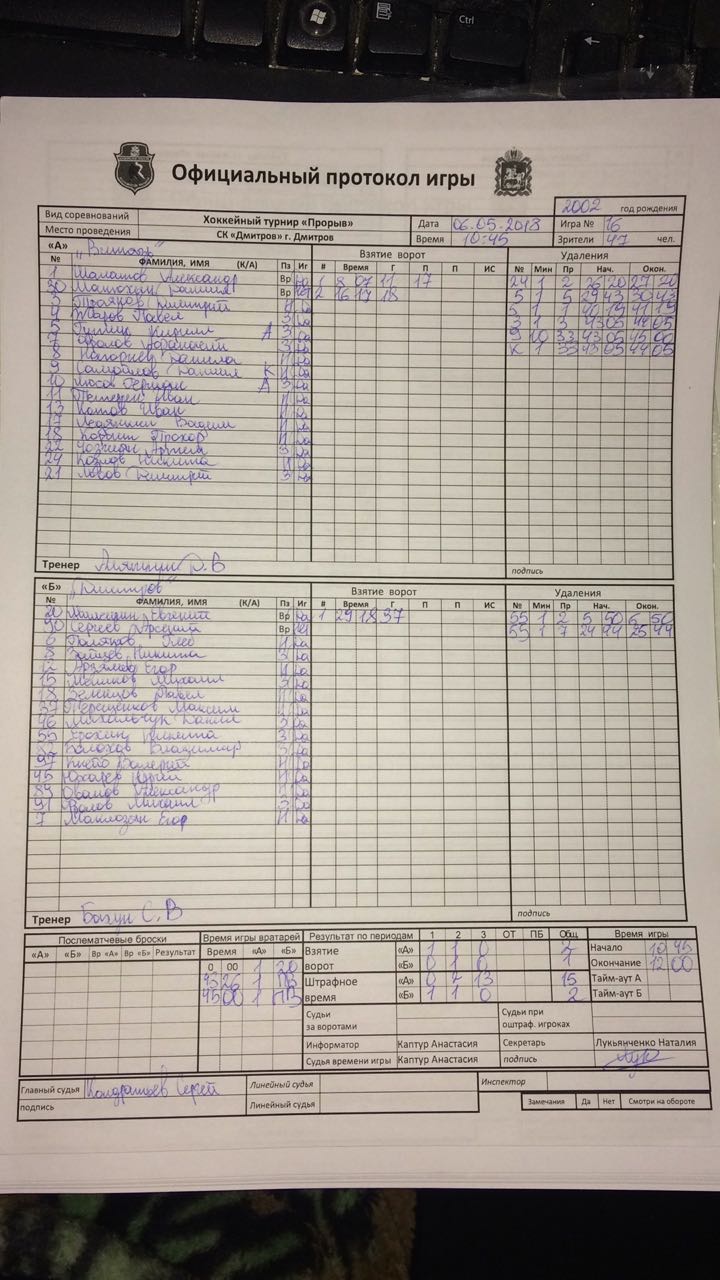 Ctrl
Официальный протокол игры
2002 год рождения
Вид соревнований Хоккейный турнир «Прорыв» Дата 06.05-2018 Игра № 16
Место проведения СК «Дмитров» г. Дмитров Время 10:45 Зрители 47 чел.
«А» Взятие ворот Удаления
№ ФАМИЛИЯ, ИМЯ (К/А) Пз Иг # Время Г П П ИС № Мин Пр Нач. Окон.
1 Александр Вр да 1 8 07 11 17 24 1 2 26 20 27 20
30 Вр 2 16 17 18 5 1 5 29 43 30 43
3 Дмитрий 5 1 1 40 19 41 19
4 Павел З да 3 1 3 43 05 44 05
5 Кирилл А З да 9 10 33 43 05 45 00
7 К 1 33 43 05 44 05
8 Данила Н да
9 Самойлов Даниил К Н да
10 Носов Герман А З да
11 Иван Н да
13 Котов Иван Н да
17 Вадим Н да
18 Прохор Н да
22
29 Козлов Никита Н да
21 Дмитрий З да
Тренер Д.В подпись
«Б» "Дмитров" Взятие ворот Удаления
№ ФАМИЛИЯ, ИМЯ (К/А) Пз Иг # Время Г П П ИС № Мин Пр Нач. Окон.
20 Евгений Вр да 1 29 18 37 55 1 2 5 50 6 50
90 Сергеев Арсений Вр 55 1 7 24 44 25 44
6 Поляков Глеб Н да
8 Зайцев Никита З да
12 Арзямов Егор Н да
15 Мешков Михаил З да
18 Зеленцов Павел Н да
37 Терещенков Максим да
46 Михальчук Данил З да
55 Ерохин Никита З да
82 Болохов Владимир З да
97 Валерий Н да
45 Юхарев Юрий Н да
89 Александр Н да
91 Волов Михаил З да
7 Егор Н да
Тренер Багун С.В подпись
Послематчевые броски Время игры вратарей Результат по периодам 1 2 3 ОТ ПБ Общ Время игры
«А» «Б» Вр «А» Вр «Б» Результат Время «А» «Б» Взятие ворот «А» 1 1 0 2 Начало 10 45
0 00 1 20 «Б» 0 1 0 1 Окончание 12 00
45 26 1 ПВ Штрафное время «А» 0 2 13 15 Тайм-аут А
45 00 1 ПВ «Б» 1 1 0 2 Тайм-аут Б
Судьи за воротами Судьи при оштраф. игроках
Информатор Каптур Анастасия Секретарь Лукьянченко Наталия
Судья времени игры Каптур Анастасия подпись
Главный судья Кондратьев Сергей Линейный судья Инспектор
подпись Линейный судья Замечания Да Нет Смотри на обороте